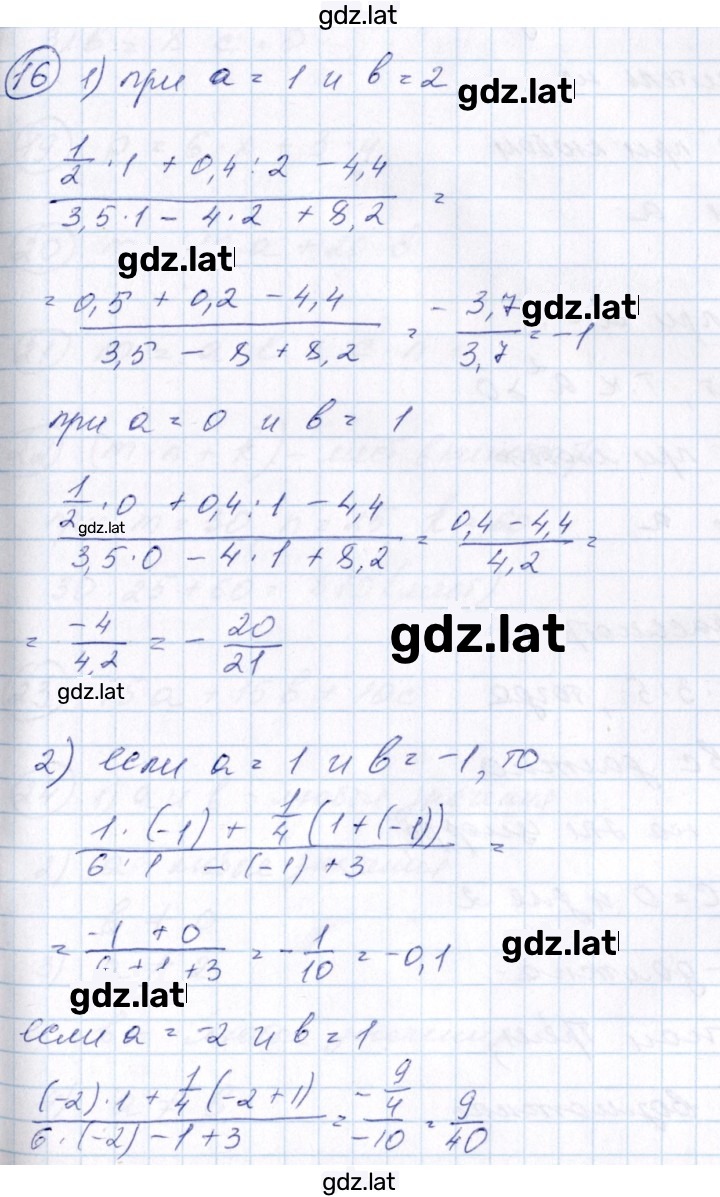 gdz.lat
16 1) при a = 1 и b = 2 gdz.lat
1/2 · 1 + 0,4 : 2 - 4,4
3,5 · 1 - 4 · 2 + 8,2 =
gdz.lat
= 0,5 + 0,2 - 4,4 / 3,5 - 8 + 8,2 = - 3,7 / 3,7 = -1 gdz.lat
при a = 0 и b = 1
1/2 · 0 + 0,4 : 1 - 4,4
gdz.lat
3,5 · 0 - 4 · 1 + 8,2 = 0,4 - 4,4 / 4,2 =
= -4 / 4,2 = - 20/21 gdz.lat
gdz.lat
2) если a = 1 и b = -1, то
1 · (-1) + 1/4 (1 + (-1))
6 · 1 - (-1) + 3 =
= -1 + 0 / 6 + 1 + 3 = - 1/10 = -0,1 gdz.lat
gdz.lat
если a = -2 и b = 1
(-2) · 1 + 1/4 (-2 + 1) / 6 · (-2) - 1 + 3 = - 9/4 / -10 = 9/40
gdz.lat